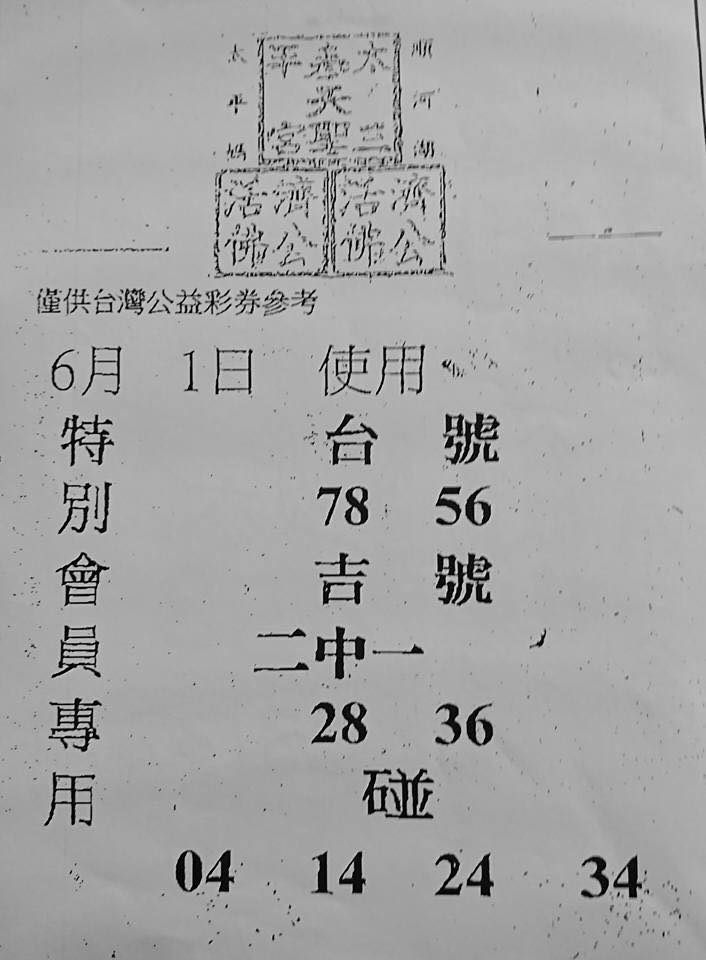 順河湖
太平媽
太臺平
天
三聖宮
濟公活佛
濟公活佛
僅供台灣公益彩券參考
6月 1日 使用
特別會員專用
台 號
78 56
吉 號
二中一
28 36
碰
04 14 24 34